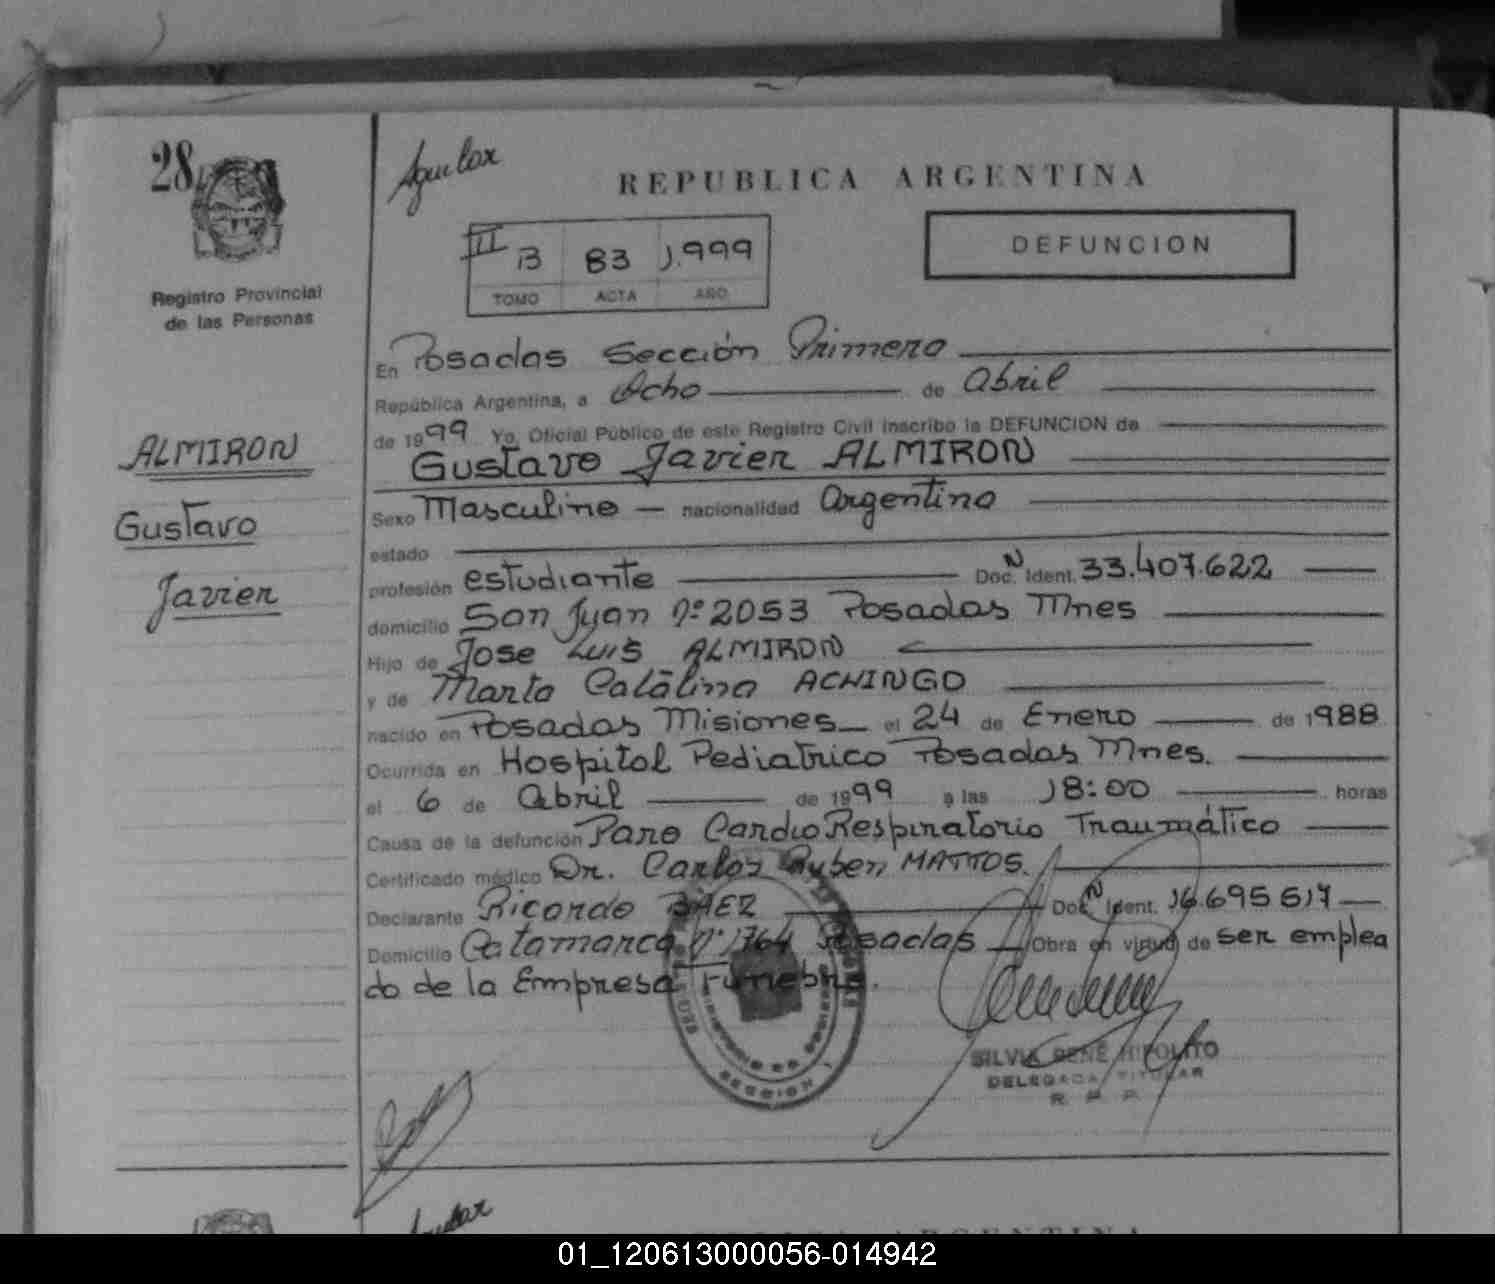 28
Aguilar
REPUBLICA ARGENTINA
III B 83 1.999
TOMO ACTA AÑO
DEFUNCION
Registro Provincial
de las Personas
ALMIRON
Gustavo
Javier
En Posadas Sección Primera
República Argentina, a Ocho de Abril
de 1999 Yo, Oficial Público de este Registro Civil inscribo la DEFUNCION de
Gustavo Javier ALMIRON
Sexo Masculino — nacionalidad Argentina
estado
profesión estudiante Doc. N Ident. 33.407.622
domicilio San Juan Nº 2053 Posadas Mnes
Hijo de Jose Luis ALMIRON
y de Marta Catalina ACHINGO
nacido en Posadas Misiones el 24 de Enero de 1988
Ocurrida en Hospital Pediatrico Posadas Mnes.
el 6 de Abril de 1999 a las 18:00 horas
Causa de la defunción Paro CardioRespiratorio Traumático
Certificado médico Dr. Carlos Ruben MATTOS.
Declarante Ricardo BAEZ Doc. N Ident. 16.695.517
Domicilio Catamarca Nº 1764 Posadas Obra en virtud de ser emplea
do de la Empresa Funebre.
SILVIA RENE HIPOLITO
DELEGADA TITULAR
R. P. P.
Aguilar
REPUBLICA ARGENTINA
01_120613000056-014942